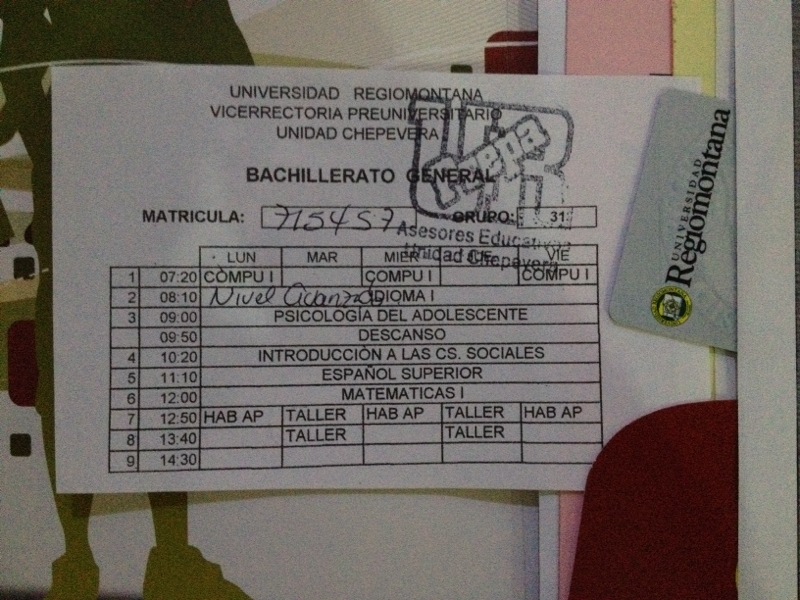 UNIVERSIDAD REGIOMONTANA
VICERRECTORIA PREUNIVERSITARIO
UNIDAD CHEPEVERA
BACHILLERATO GENERAL
MATRICULA: 715457 GRUPO: 31
Prepa
Asesores Educativos
Unidad Chepevera
LUN MAR MIER VIE
1 07:20 COMPU I COMPU I COMPU I
2 08:10 Nivel avanzado IDIOMA I
3 09:00 PSICOLOGÍA DEL ADOLESCENTE
09:50 DESCANSO
4 10:20 INTRODUCCIÓN A LAS CS. SOCIALES
5 11:10 ESPAÑOL SUPERIOR
6 12:00 MATEMATICAS I
7 12:50 HAB AP TALLER HAB AP TALLER HAB AP
8 13:40 TALLER TALLER
9 14:30
UNIVERSIDAD
Regiomontana